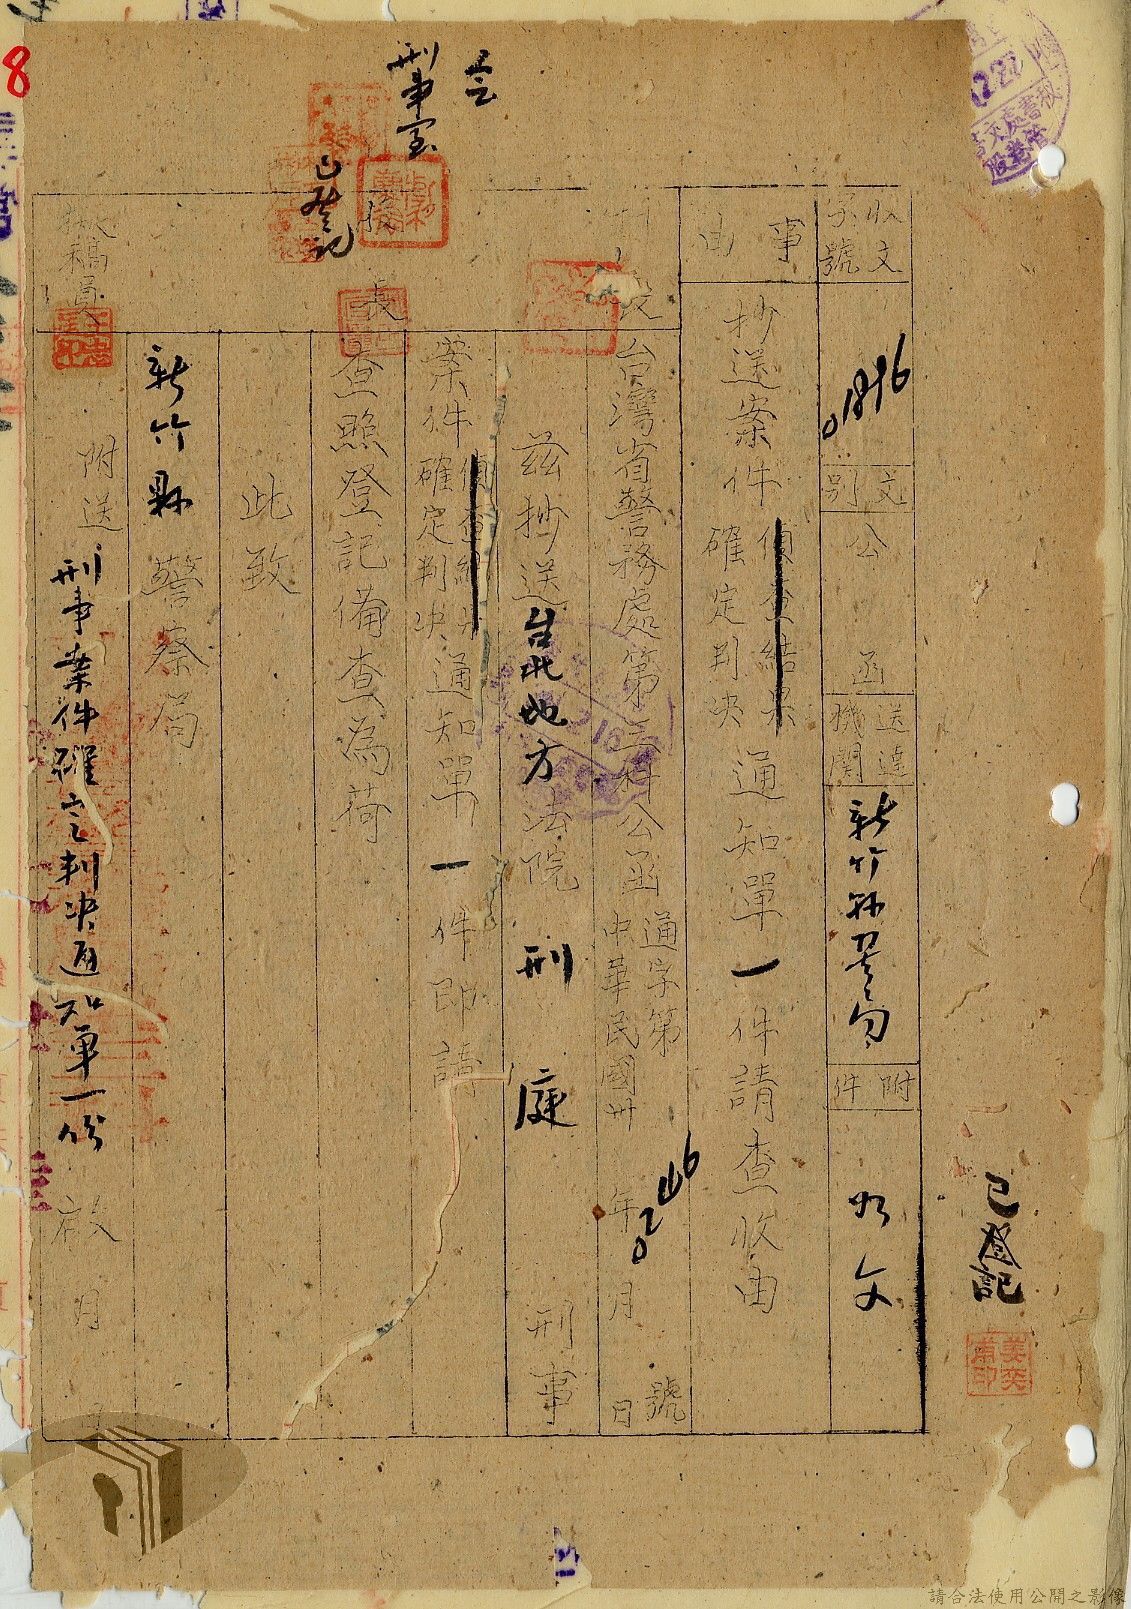 8
會
刑事室
已登記
收文字號
01896
文別
公函
送達機關
新竹縣警局
附件
如文
事由
抄送案件偵查結果確定判決通知單一件請查收由
台灣省警務處第三科公函
通字第
號
中華民國卅 年 月 日
茲抄送台北地方法院刑庭刑事
案件偵查結果確定判決通知單一件即請
查照登記備查為荷
此致
新竹縣警察局
附送刑事案件確定判決通知單一份
啟 月 日
長
股長
擬稿員
已登記
姜奕甫印
請合法使用公開之影像